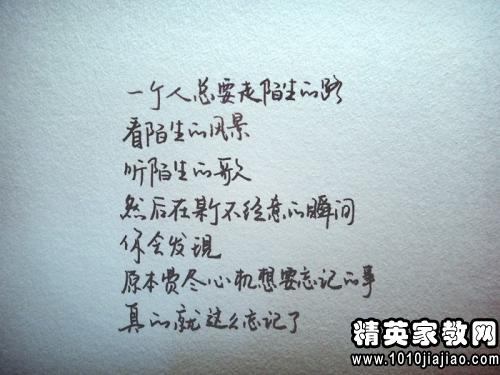 一个人总要走陌生的路
看陌生的风景
听陌生的歌
然后在某个不经意的瞬间
你会发现
原本费尽心机想要忘记的事
真的就这么忘记了
精英家教网
www.1010jiajiao.com